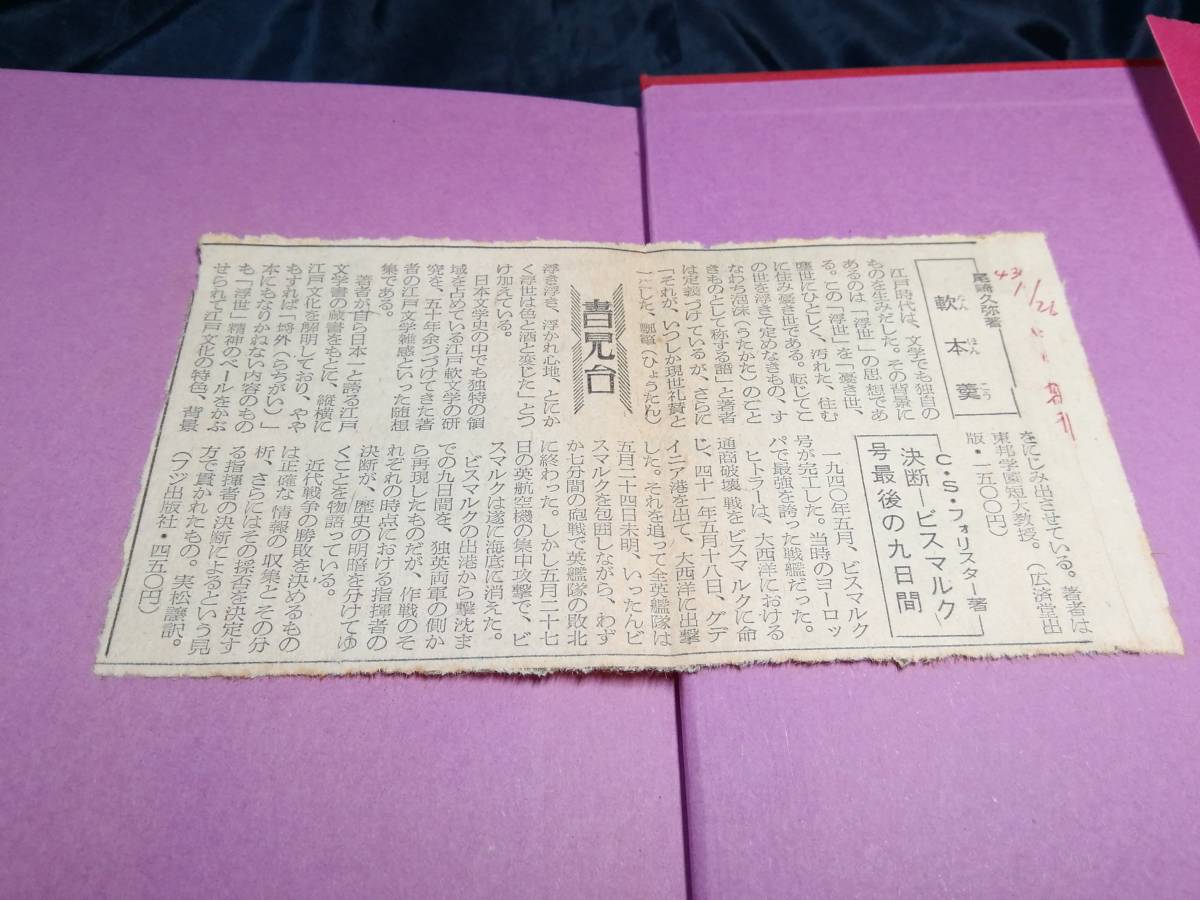 尾崎久弥著
軟本羹
なんぽんこう
江戸時代は、文学でも独自の
ものを生みだした。その背景に
あるのは「浮世」の思想であ
る。この「浮世」を「憂き世、
塵世にひとしく、汚れた、住む
に住み憂き世である。転じてこ
の世を浮きて定めなきもの、す
なわち泡沫（うたかた）のごと
きものとして称する語」と著者
は定義づけているが、さらに
「それが、いつしか現世礼賛と
化した、瓢箪（ひょうたん）
浮き浮き、浮かれ心地、とにか
く浮世は色と酒と変じた」とつ
け加えている。
日本文学史の中でも独特の領
域を占めている江戸軟文学の研
究を、五十年余つづけてきた著
者の江戸文学雑感といった随想
集である。
著者が自ら日本一と誇る江戸
文学書の蔵書をもとに、縦横に
江戸文化を解明しており、やや
もすれば「埒外（らちがい）」
本にもなりかねない内容のもの
も「浮世」精神のベールをかぶ
せられて江戸文化の特色、背景
をにじみ出させている。著者は
東邦学園短大教授。（広済堂出
版・一五〇〇円）
書見台
C・S・フォリスター著
決断―ビスマルク
号最後の九日間
一九四〇年五月、ビスマルク
号が完工した。当時のヨーロッ
パで最強を誇った戦艦だった。
ヒトラーは、大西洋における
通商破壊戦をビスマルクに命
じ、四十一年五月十八日、グデ
イニア港を出て、大西洋に出撃
した。それを追って全英艦隊は
五月二十四日未明、いったんビ
スマルクを包囲しながら、わず
か七分間の砲戦で英艦隊の敗北
に終わった。しかし五月二十七
日の英航空機の集中攻撃で、ビ
スマルクは遂に海底に消えた。
ビスマルクの出港から撃沈ま
での九日間を、独英両軍の側か
ら再現したものだが、作戦のそ
れぞれの時点における指揮者の
決断が、歴史の明暗を分けてゆ
くことを物語っている。
近代戦争の勝敗を決めるもの
は正確な情報の収集とその分
析、さらにはその採否を決定す
る指揮者の決断によるという見
方で貫かれたもの。実松譲訳。
（フジ出版社・四五〇円）